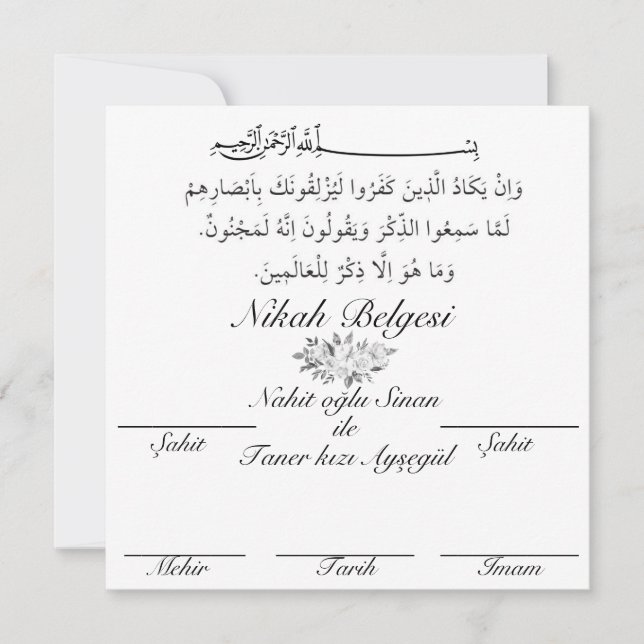 بِسْمِ اللَّهِ الرَّحْمَٰنِ الرَّحِيمِ
وَاِنْ يَكَادُ الَّذ۪ينَ كَفَرُوا لَيُزْلِقُونَكَ بِاَبْصَارِهِمْ
لَمَّا سَمِعُوا الذِّكْرَ وَيَقُولُونَ اِنَّهُ لَمَجْنُونٌ.
وَمَا هُوَ اِلَّا ذِكْرٌ لِلْعَالَم۪ينَ.
Nikah Belgesi
Nahit oğlu Sinan
ile
Taner kızı Ayşegül
Şahit
Şahit
Mehir
Tarih
Imam